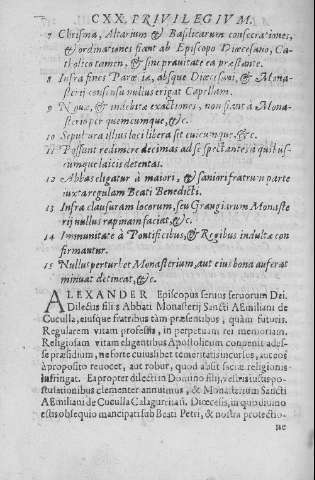 CXX. PRIVILEGIVM.
7 Chrisma, Altarium & Basilicarum consecrationes,
& ordinationes fiant ab Episcopo Diœcesano, Ca-
tholico tamen, & sine prauitate ea præstante.
8 Infra fines Paroeciæ, absque Diœcesani, & Mona-
sterij consensu nullus erigat Capellam.
9 Nouæ, & indebitæ exactiones, non fiant à Mona-
sterio per quemcumque, &c.
10 Sepultura illius loci libera sit cuicunque, &c.
11 Possunt redimere decimas ad se spectantes à quibus-
cumque laicis detentas.
12 Abbas eligatur à maiori, & saniori fratrum parte
iuxta regulam Beati Benedicti.
13 Infra clausuram locorum, seu Grangiarum Monaste
rij nullus rapinam faciat, &c.
14 Immunitates à Pontificibus, & Regibus indultæ con
firmantur.
15 Nullus perturbet Monasterium, aut eius bona auferat
minuat detineat, &c.
ALEXANDER Episcopus seruus seruorum Dei.
Dilectis filijs Abbati Monasterij Sancti AEmiliani de
Cuculla, eiusque fratribus tàm præsentibus, quàm futuris.
Regularem vitam professis, in perpetuam rei memoriam.
Religiosam vitam eligentibus Apostolicum conuenit ades-
se præsidium, ne forte cuiuslibet temeritatis incursus, aut eos
à proposito reuocet, aut robur, quod absit sacræ religionis
infringat. Eapropter dilecti in Domino filij, vestris iustis po-
stulationibus clementer annuimus, & Monasterium Sancti
AEmiliani de Cuculla Calagurritan. Diœcesis, in quo diuino
estis obsequio mancipati sub Beati Petri, & nostra protectio-
ne